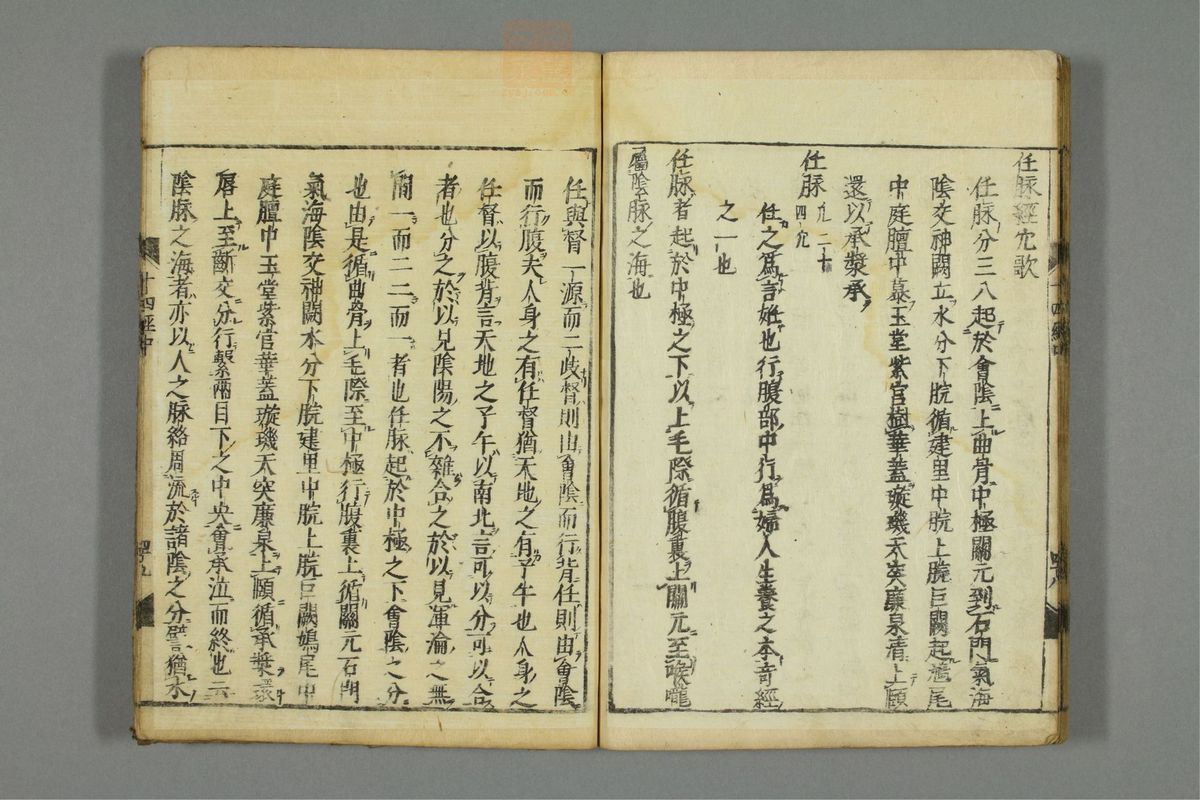 任脉經穴歌
任脉分三八起於會陰上曲骨中極關元到石門氣海
陰交神闕立水分下脘循建里中脘上脘巨闕起鳩尾
中庭膻中慕玉堂紫宮樹華蓋璇璣天突廉泉清上頤
還以承漿承
任脉 凡二十四穴
任之爲言妊也行腹部中行爲婦人生養之本奇經
之一也
任脉者起於中極之下以上毛際循腹裏上關元至喉嚨
屬陰脉之海也
任與督一源而二歧督則由會陰而行背任則由會陰
而行腹夫人身之有任督猶天地之有子午也人身之
任督以腹背言天地之子午以南北言可以分可以合
者也分之於以見陰陽之不雜合之於以見渾淪之無
間一而二二而一者也任脉起於中極之下會陰之分
也由是循曲骨上毛際至中極行腹裏上循關元石門
氣海陰交神闕水分下脘建里中脘上脘巨闕鳩尾中
庭膻中玉堂紫宮華蓋璇璣天突廉泉上頤循承漿環
唇上至齗交分行繫兩目下之中央會承泣而終也云
陰脉之海者亦以人之脉絡周流於諸陰之分譬猶水
十四經中
四十九